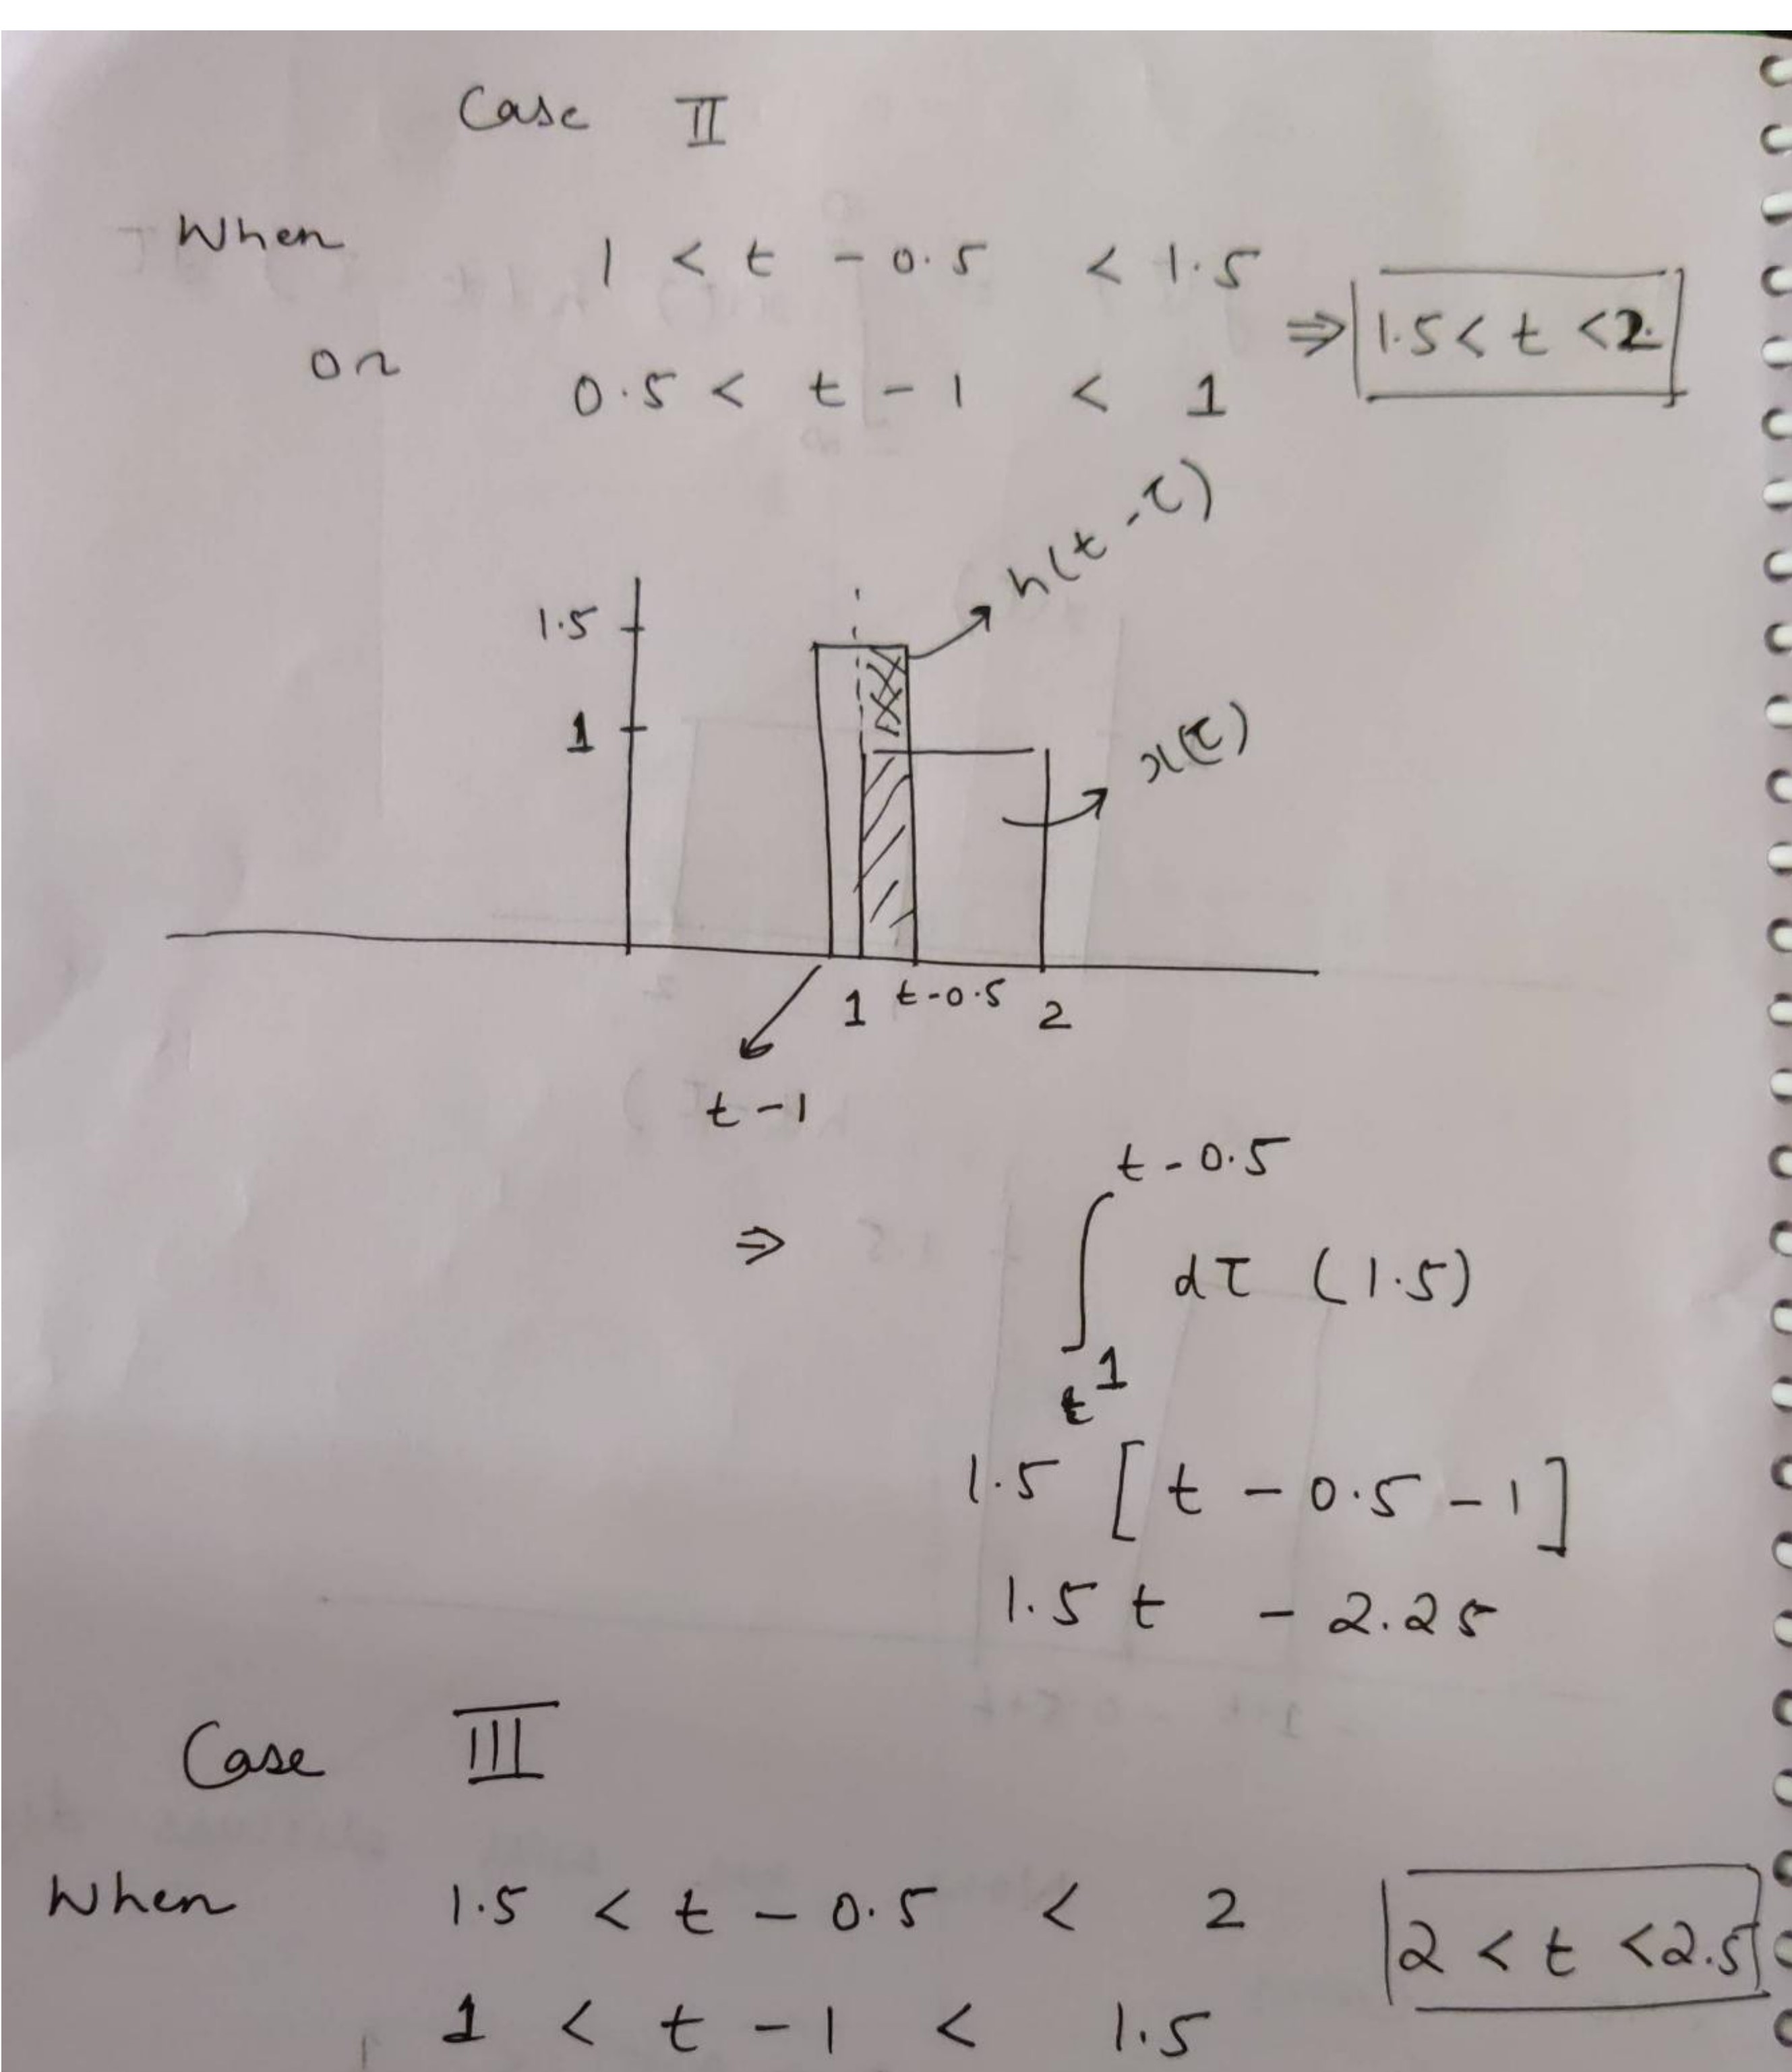 Case II
When 1 < t - 0.5 < 1.5
or 0.5 < t - 1 < 1
⇒ 1.5 < t < 2
h(t - τ)
1.5
1
x(τ)
1 t-0.5 2
t-1
⇒ ∫₁^(t-0.5) dτ (1.5)
1.5 [t - 0.5 - 1]
1.5 t - 2.25
Case III
When 1.5 < t - 0.5 < 2
2 < t < 2.5
1 < t - 1 < 1.5